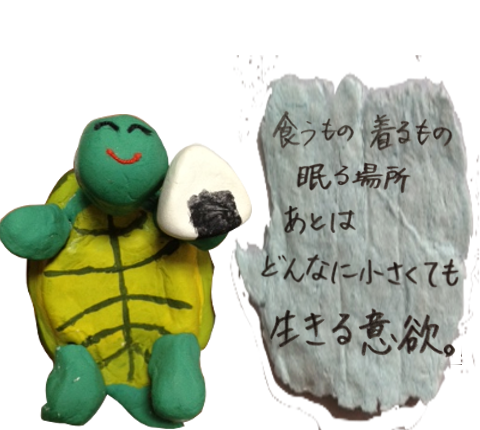 食うもの 着るもの
眠る場所
あとは
どんなに小さくても
生きる意欲。